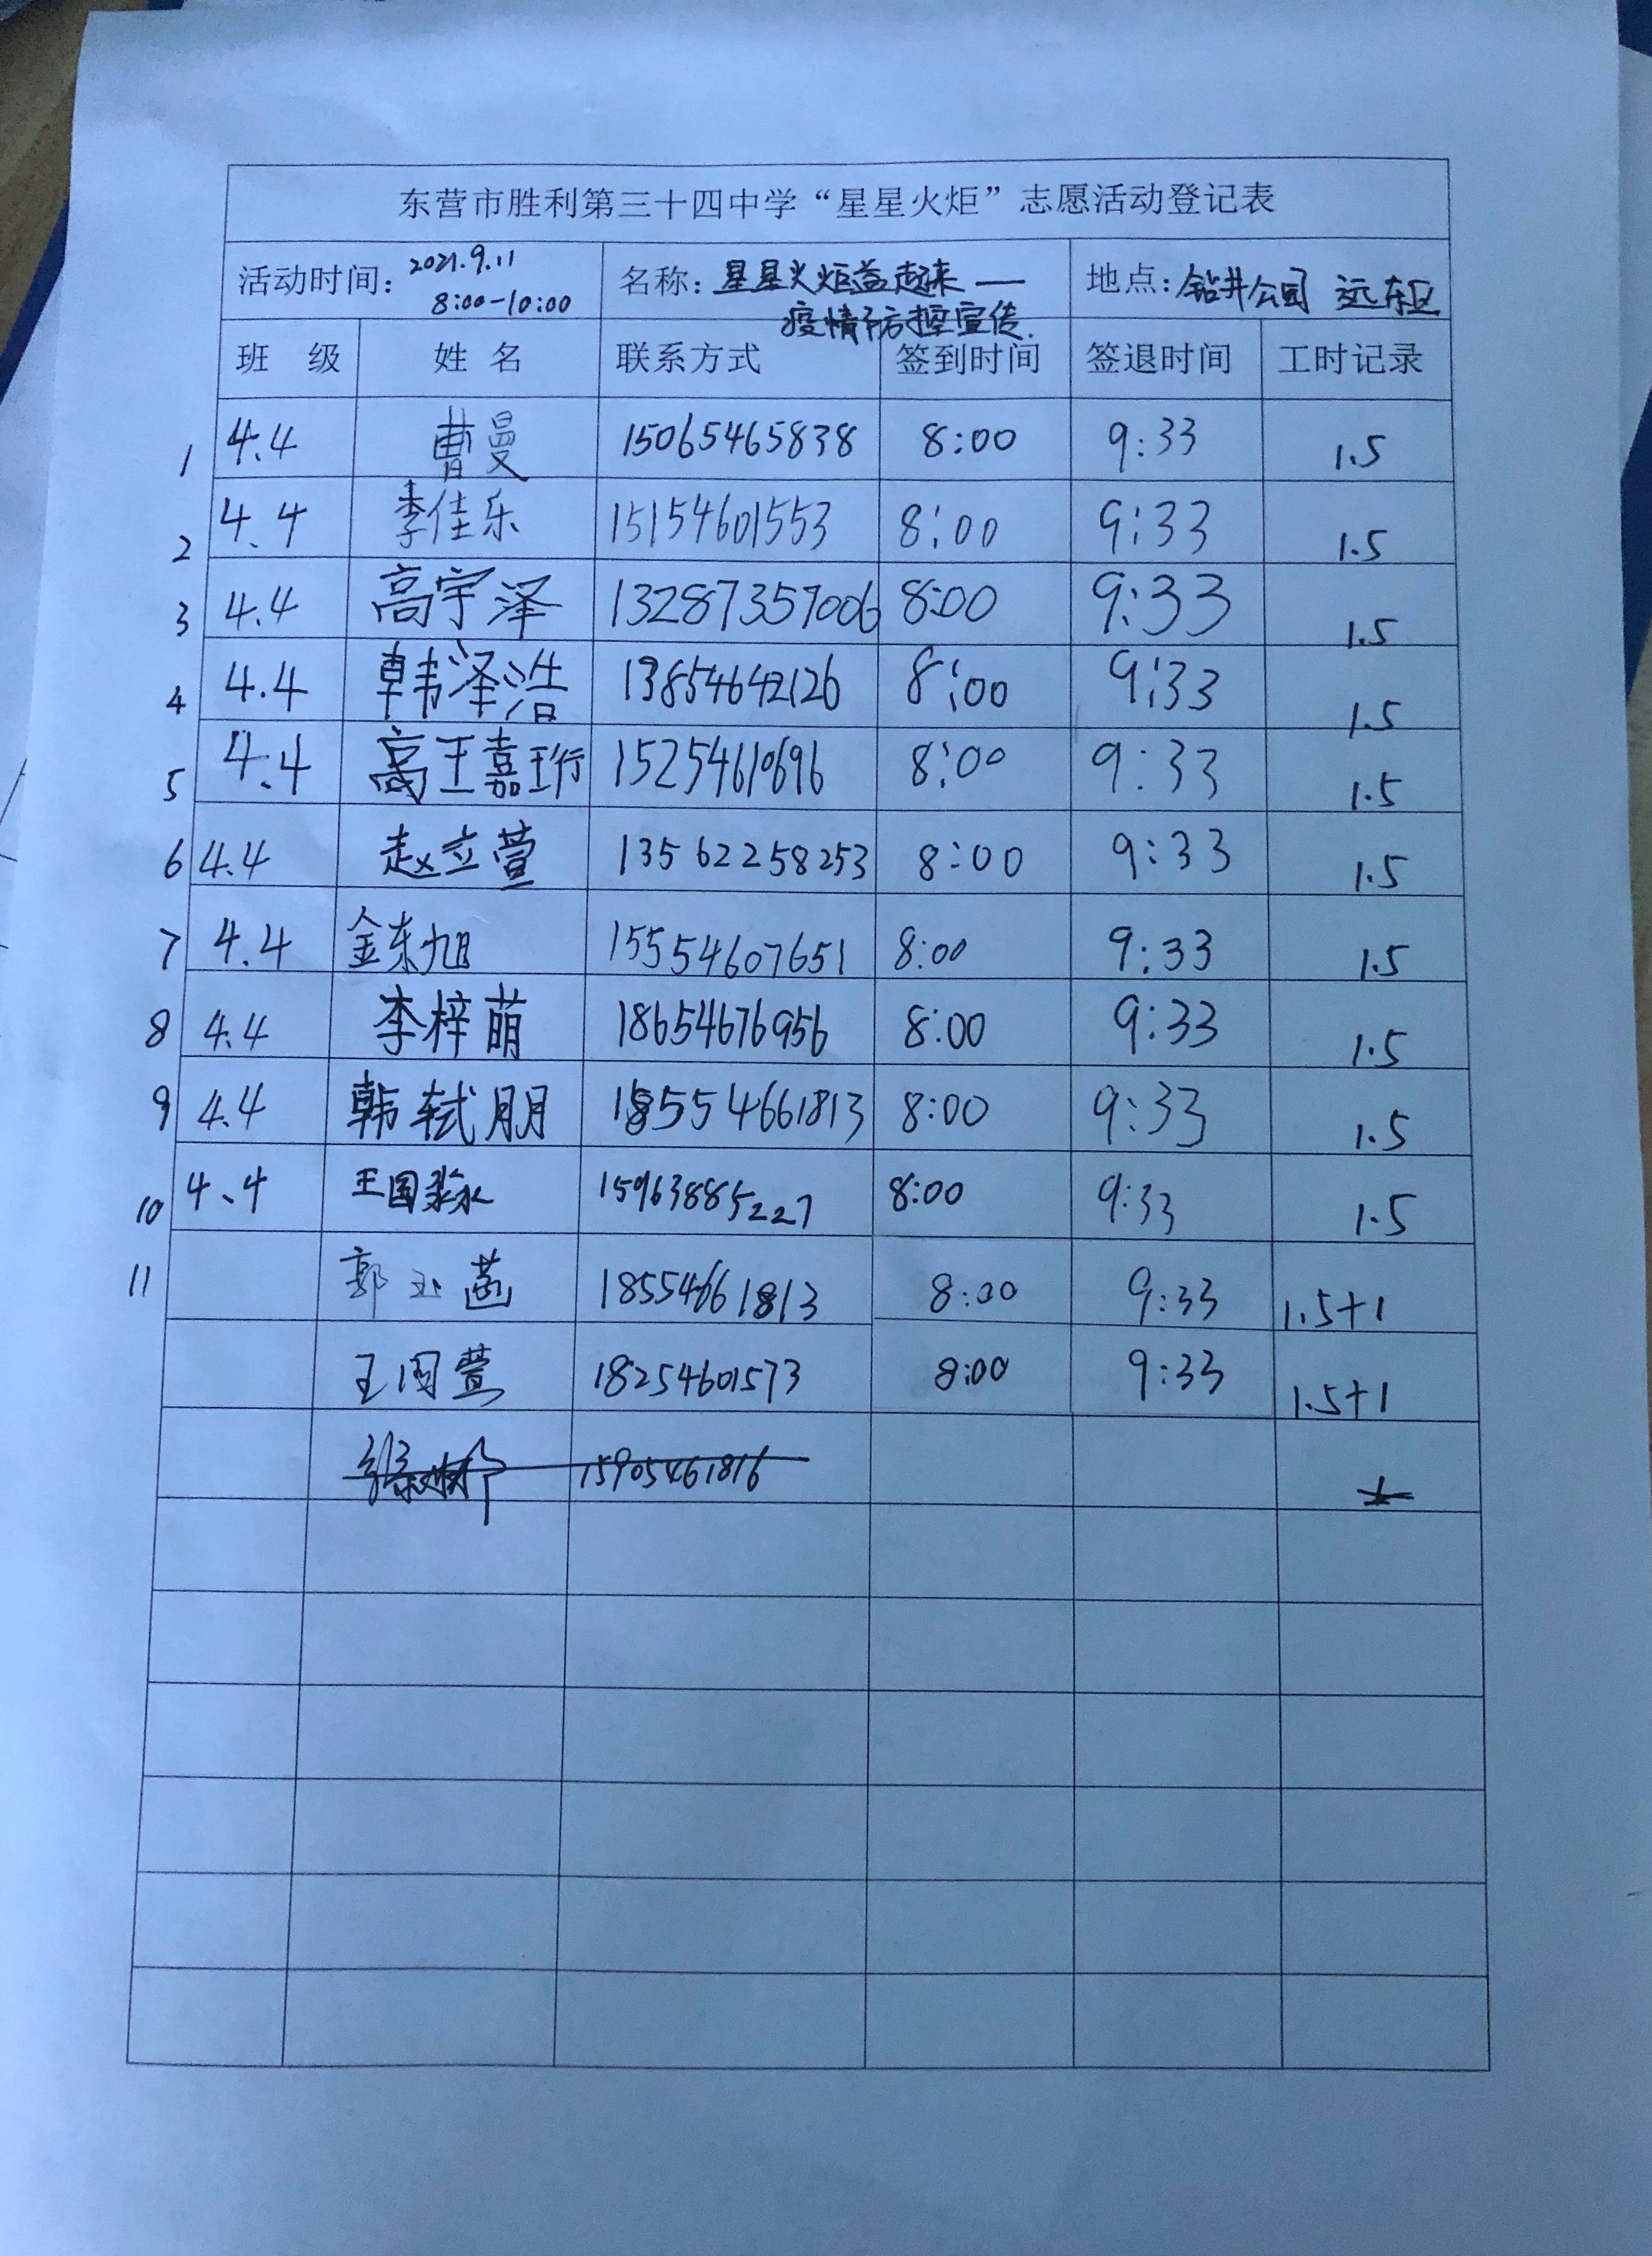 东营市胜利第三十四中学“星星火炬”志愿活动登记表
活动时间: 2021.9.11 8:00-10:00 名称: 星星火炬益起来—疫情防控宣传. 地点: 钻井公园 远东区
班 级 姓 名 联系方式 签到时间 签退时间 工时记录
1 4.4 曹曼 15065465838 8:00 9:33 1.5
2 4.4 李佳乐 15154601553 8:00 9:33 1.5
3 4.4 高宇泽 13287357006 8:00 9:33 1.5
4 4.4 韩泽浩 13854642126 8:00 9:33 1.5
5 4.4 高王嘉珩 15254610696 8:00 9:33 1.5
6 4.4 赵立萱 13562258253 8:00 9:33 1.5
7 4.4 金东旭 15554607651 8:00 9:33 1.5
8 4.4 李梓萌 18654676956 8:00 9:33 1.5
9 4.4 韩轼朋 18554661813 8:00 9:33 1.5
10 4.4 王国 15963885227 8:00 9:33 1.5
11 郭玉菡 18554661813 8:00 9:33 1.5+1
王国萱 18254601573 8:00 9:33 1.5+1
15905461816